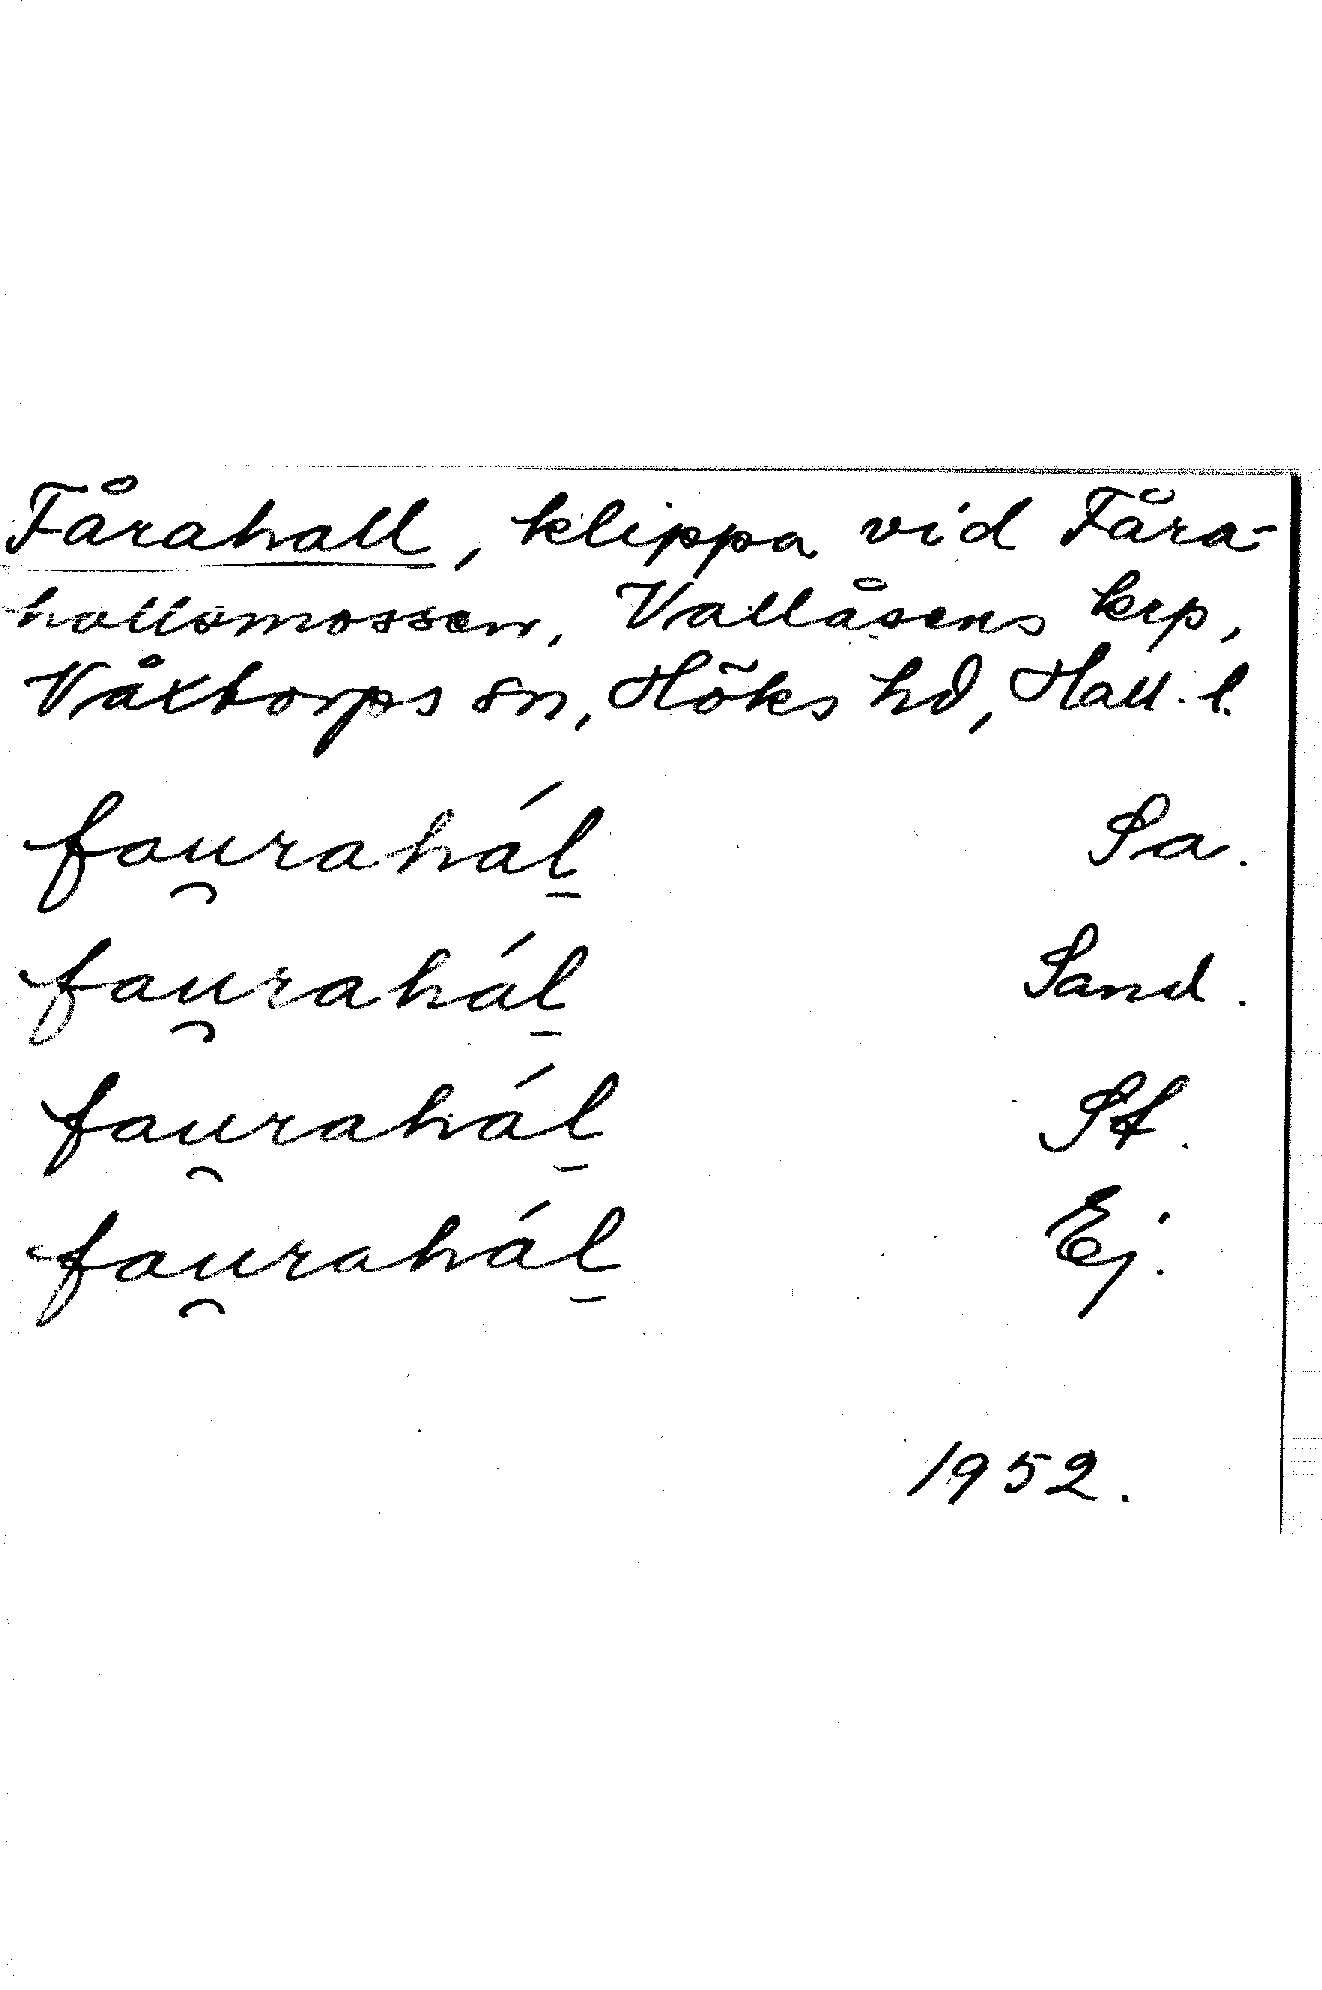 Fårahall, klippa vid Fåra-
hallsmossen, Vallåsens krp,
Våxtorps sn, Höks hd, Hall. l.
fau̯rahál̲ Sa.
fau̯rahál̲ Sand.
fau̯rahál̲ St.
fau̯rahál̲ Ej.
1952.